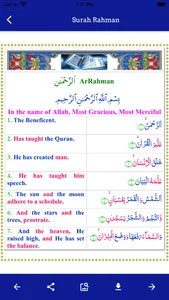 7:11 PM
Surah Rahman
اَلرَّحْمٰنْ ArRahman
بِسْمِ اللّٰهِ الرَّحْمٰنِ الرَّحِيْمِ
In the name of Allah, Most Gracious, Most Merciful
1. The Beneficent. اَلرَّحْمٰنُ
2. Has taught the Quran. عَلَّمَ الْقُرْاٰنَ
3. He has created man. خَلَقَ الْاِنْسَانَ
4. He has taught him عَلَّمَهُ الْبَيَانَ
speech.
5. The sun and the moon اَلشَّمْسُ وَالْقَمَرُ بِحُسْبَانٍ
adhere to a schedule.
6. And the stars and the وَّالنَّجْمُ وَالشَّجَرُ يَسْجُدٰنِ
trees, prostrate.
7. And the heaven, He وَالسَّمَآءَ رَفَعَهَا وَوَضَعَ الْمِيْزَانَ
raised high, and He has set
the balance.